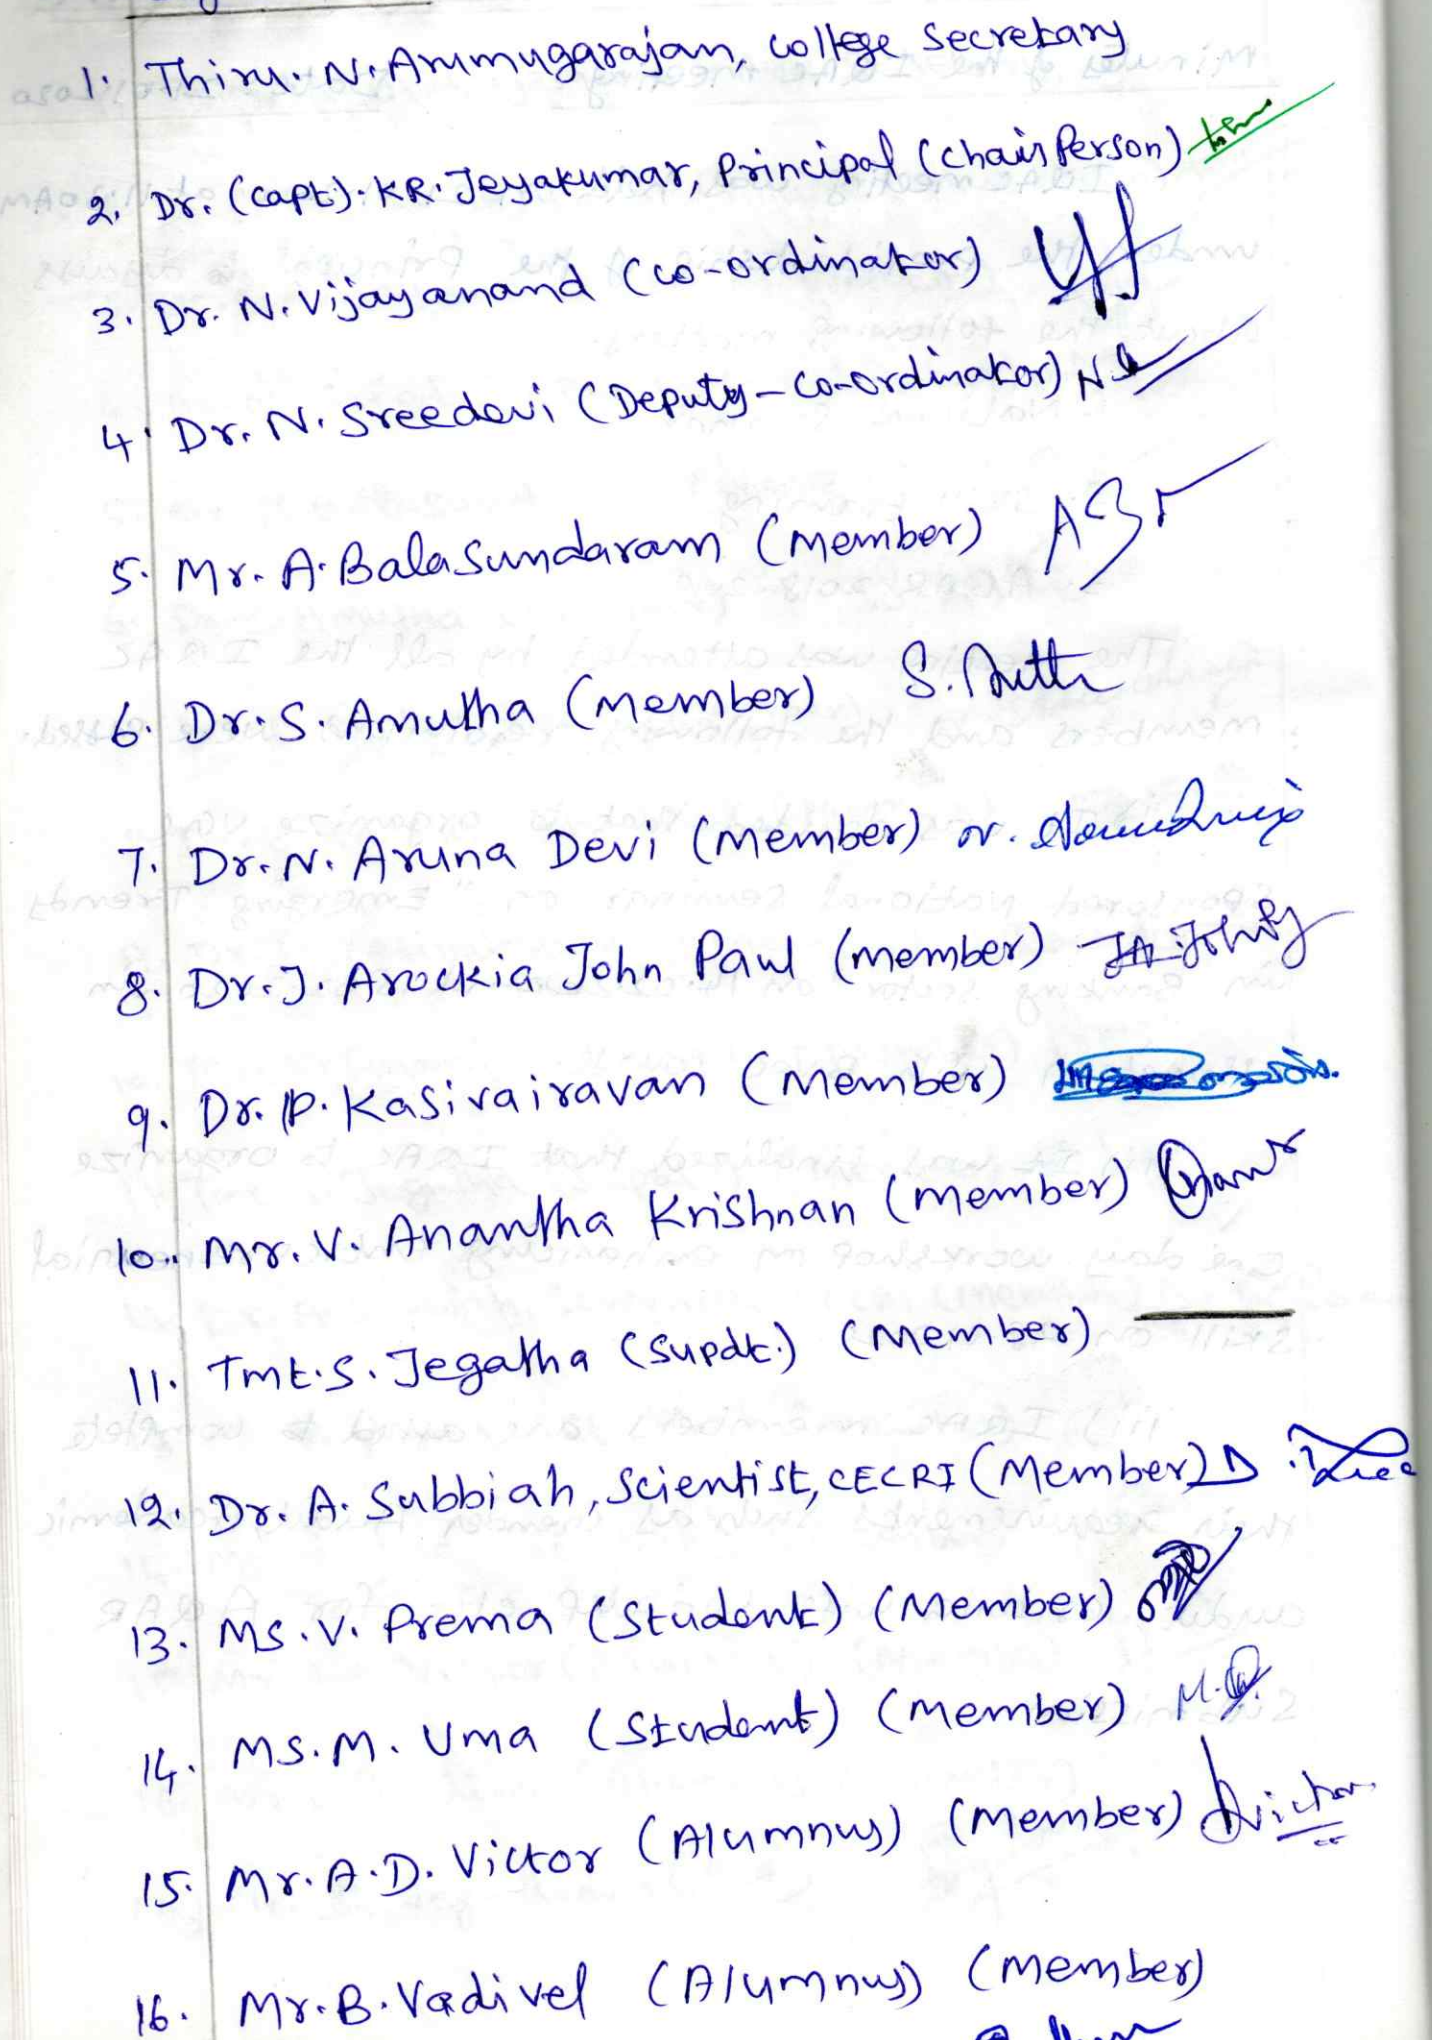 1. Thiru. N. Arumugarajan, College Secretary
2. Dr. (Capt). KR. Jeyakumar, Principal (Chair Person)
3. Dr. N. Vijayanand (Co-ordinator)
4. Dr. N. Sreedevi (Deputy-Co-ordinator)
5. Mr. A. Balasundaram (Member)
6. Dr. S. Amutha (Member)
7. Dr. N. Aruna Devi (Member)
8. Dr. J. Arockia John Paul (Member)
9. Dr. P. Kasivairavan (Member)
10. Mr. V. Anantha Krishnan (Member)
11. Tmt. S. Jegatha (Supdt.) (Member)
12. Dr. A. Subbiah, Scientist, CECRI (Member)
13. Ms. V. Prema (Student) (Member)
14. Ms. M. Uma (Student) (Member)
15. Mr. A.D. Victor (Alumnus) (Member)
16. Mr. B. Vadivel (Alumnus) (Member)